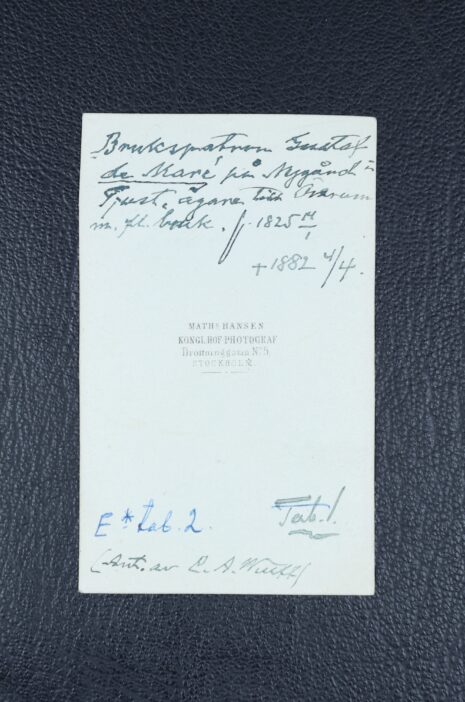 Brukspatron Gustaf
de Maré på Nygård i
Tjust, ägare till
m. fl. bruk. f. 1825
+ 1882 4/4.
MATHS HANSEN
KONGL. HOF PHOTOGRAF
Drottninggatan No 5,
STOCKHOLM.
Tab. 1.
E* tab. 2.
(Ant. av E. A.